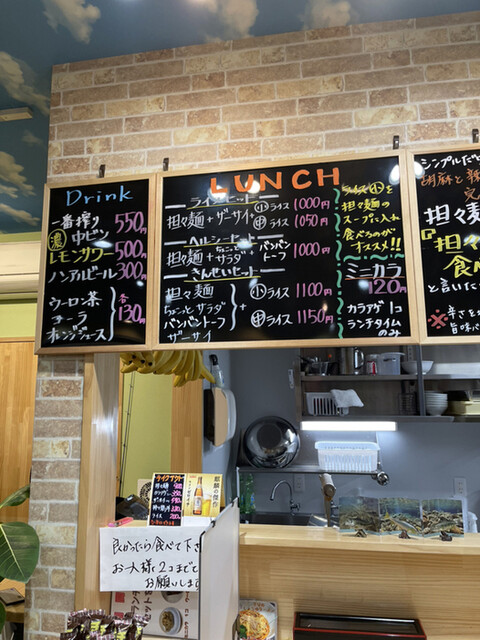 Drink
一番搾り
中ビン 550円
濃レモンサワー 500円
ノンアルビール 300円
ウーロン茶
コーラ
オレンジジュース
各130円
LUNCH
ライスセット
担々麺+ザーサイ+
小ライス 1000円
中ライス 1050円
ヘルシーセット
担々麺+ちょこっとサラダ+バンバントーフ 1000円
きんせいセット
担々麺
ちょこっとサラダ
バンバントーフ
ザーサイ
+
小ライス 1100円
中ライス 1150円
ライス小を
担々麺の
スープに入れ
食べるのが
オススメ!!
ミニカラ
120円
カラアゲ1コ
ランチタイム
のみ
シンプルだと
胡麻と辣
担々麺
『担々
食べ
と言いた
※辛さを
旨味
テイクアウト
麒麟の傑作
良かったら食べて下さ
お一人様2コまでで
お願いします